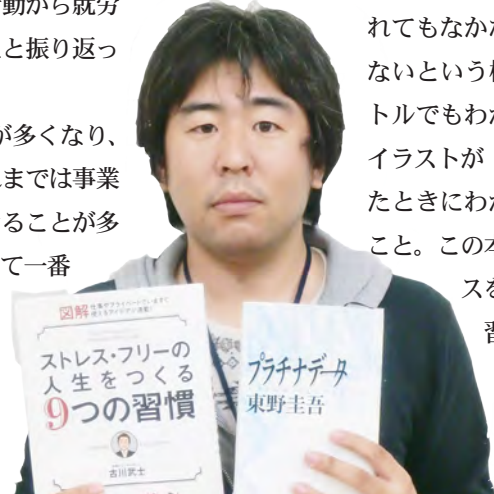 動から就労
と振り返っ
が多くなり、
までは事業
ることが多
て一番
れてもなか
ないという
トルでもわ
イラストが
たときにわ
こと。この本
スを
図解
ストレス・フリーの
人生をつくる
9つの習慣
古川武士
プラチナデータ
東野圭吾